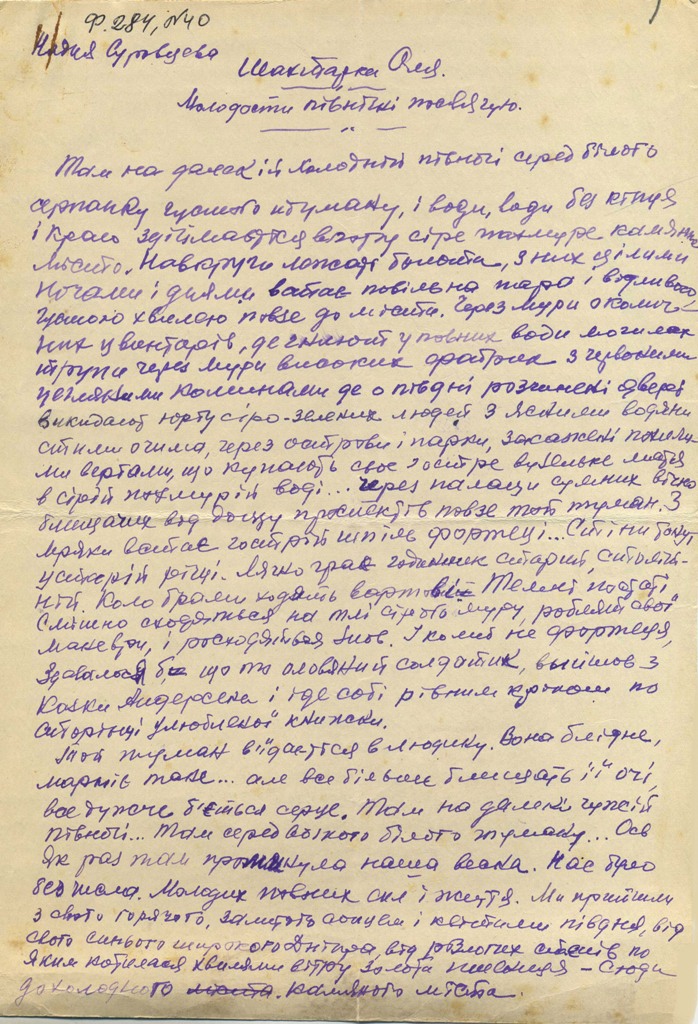 Ф. 284, №40
Надія Суровцева
Шахтарка Оля.
Молодости півночі посвячую.
Там на далекій холодній півночі серед білого
серпанку густого туману, і води, води без кінця
і краю здіймається вгору сіре похмуре камяне
місто. Навкруги лежать болота, з них цілими
ночами і днями встає повільна пара і
густою хвилею повзе до міста. Через мури околич-
них цвинтарів, де гниють у повних води могилах
трупи через мури високих фабрик з червоними
цегляними коминами де о півдні розчинені двері
викидають юрту сіро-зелених людей з ясними водяни
стими очима, через острови і парки,
ми вертами, що купають своє гостре вузеньке листя
в сірій похмурій воді... через палаци сумних вікно
блищачих від дощу проспектів повзе той туман. З
мряки встає гострий шпіль фортеці... Стіни
у старій річці. Мляво грає годинник старий,
ній. Коло брами ходять вартові. Темні постаті
смішно сходяться на тлі сірого муру, роблять свої
маневри, і росходяться знов. І коли не фортеця,
здавалося б що то оловяний солдатик, вийшов з
казки Андерсена і іде собі рівним кроком по
сторінці улюбленої книжки.
Той туман в'їдається в людину. Вона блідне,
марніє таке... але все більше блищать її очі,
все дужче б'ється серце. Там на далекій чужій
півночі... Там серед вогкого білого туману... Ось
як раз там промайнула наша весна. Нас було
без числа. Молодих повних сил і життя. Ми прийшли
з свого гарячого, залитого сонцем і квітами півдня, від
свого синього широкого Дніпра, від розлогих степів по
яким котилася хвилями вітру золота пшениця – сюди
до холодного міста. камяного міста.